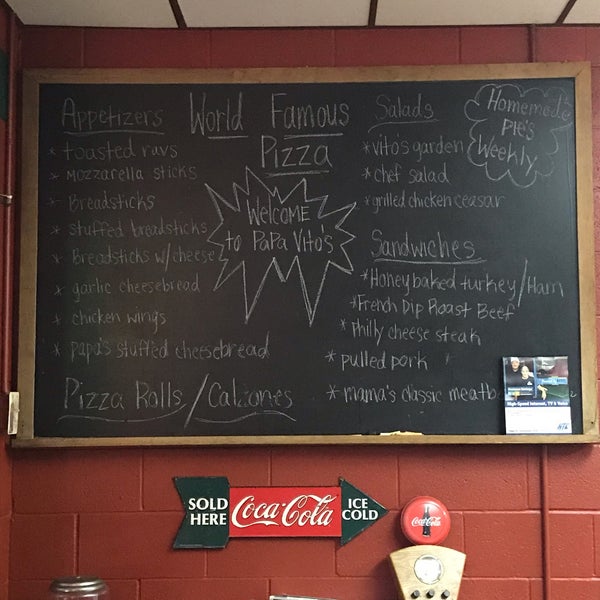 Appetizers
* toasted ravs
* mozzarella sticks
* Breadsticks
* stuffed breadsticks
* Breadsticks w/cheese
* garlic cheesebread
* chicken wings
* papa's stuffed cheesebread
Pizza Rolls / Calzones
World Famous
Pizza
Welcome
to Papa Vito's
Salads
* vito's garden
* chef salad
* grilled chicken ceasar
Homemade
Pie's
Weekly
Sandwiches
* Honey baked turkey/Ham
* French Dip Roast Beef
* Philly cheese steak
* pulled pork
* mama's classic
High-Speed Internet, TV & Voice
SOLD
HERE
Coca-Cola
ICE
COLD
Coca-Cola